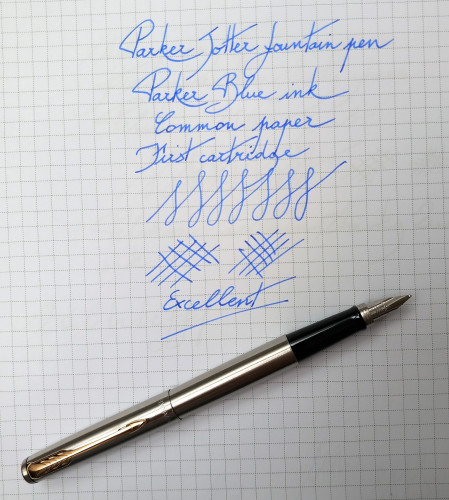 Parker Jotter fountain pen
Parker Blue ink
Common paper
First cartridge
Excellent